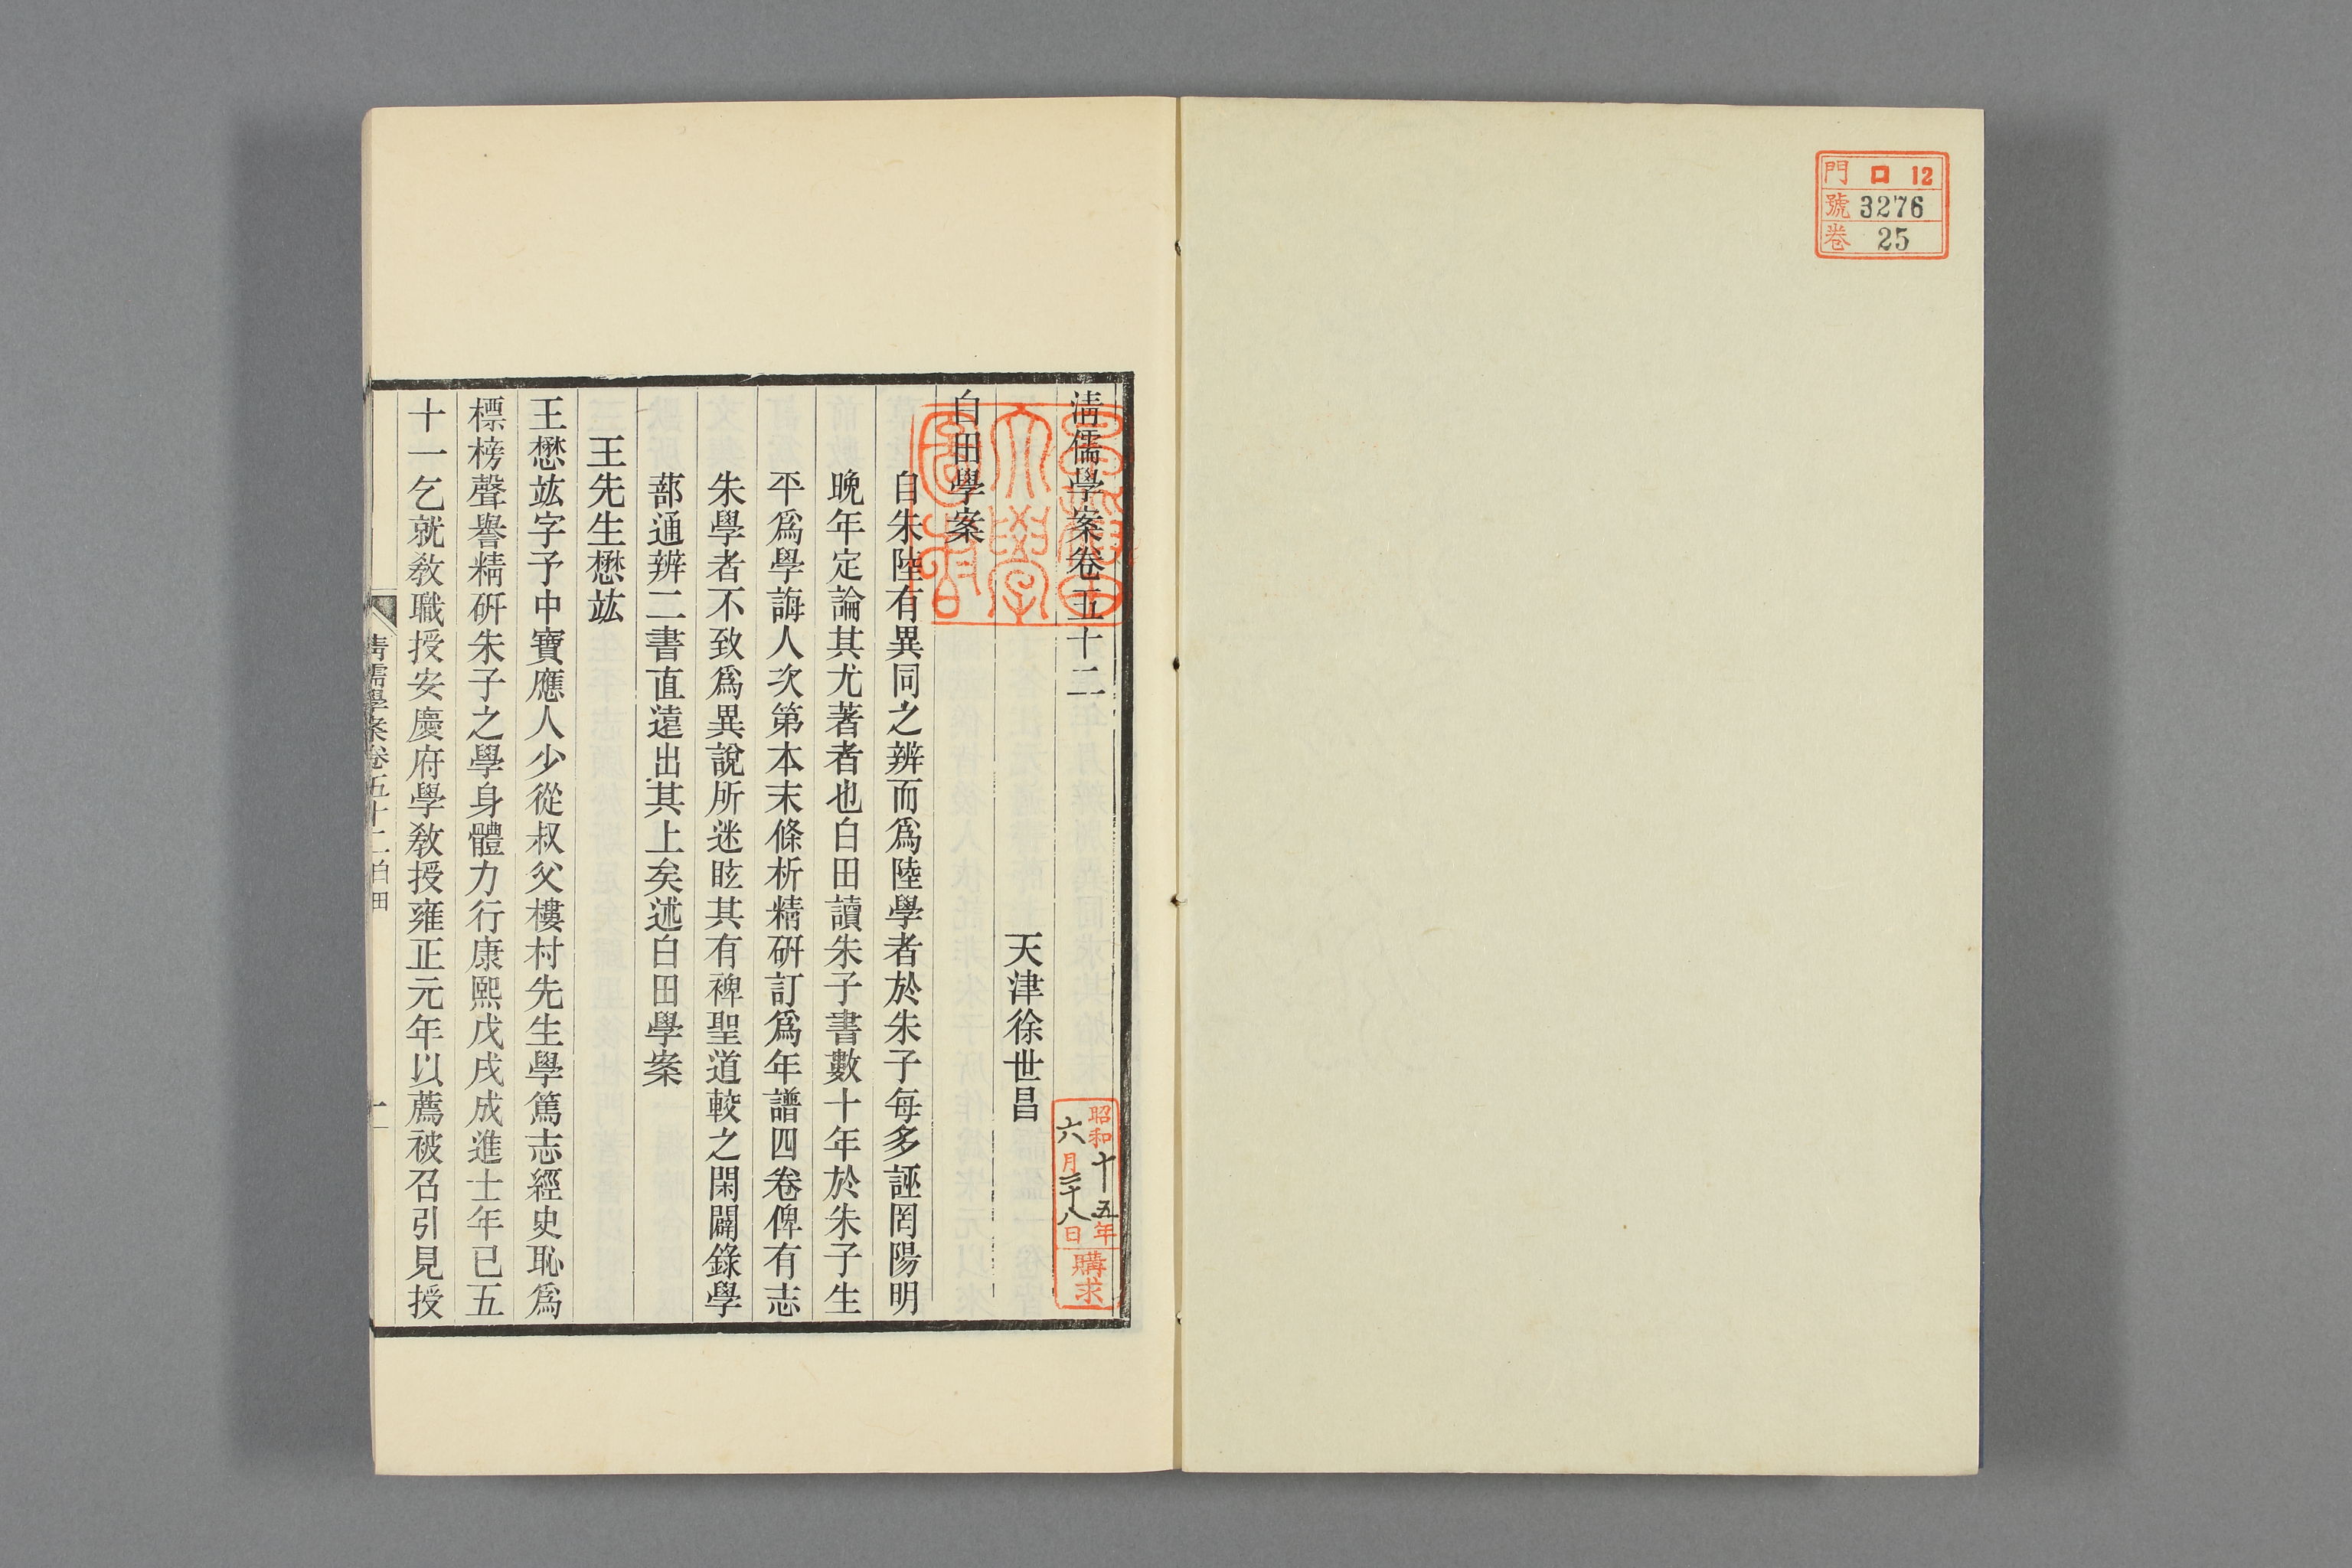 門 ロ 12
號 3276
卷 25
清儒學案卷五十二
天津徐世昌
白田學案
自朱陸有異同之辨而爲陸學者於朱子每多誣罔陽明
晚年定論其尤著者也白田讀朱子書數十年於朱子生
平爲學誨人次第本末條析精硏訂爲年譜四卷俾有志
朱學者不致爲異說所迷眩其有裨聖道較之閑闢錄學
蔀通辨二書直遠出其上矣述白田學案
王先生懋竑
王懋竑字予中寶應人少從叔父樓村先生學篤志經史恥爲
標榜聲譽精硏朱子之學身體力行康熙戊戌成進士年已五
十一乞就敎職授安慶府學敎授雍正元年以薦被召引見授
清儒學案卷五十二 白田
一
早稻田
大學
圖書
昭和十五年
六月二十八日
購求